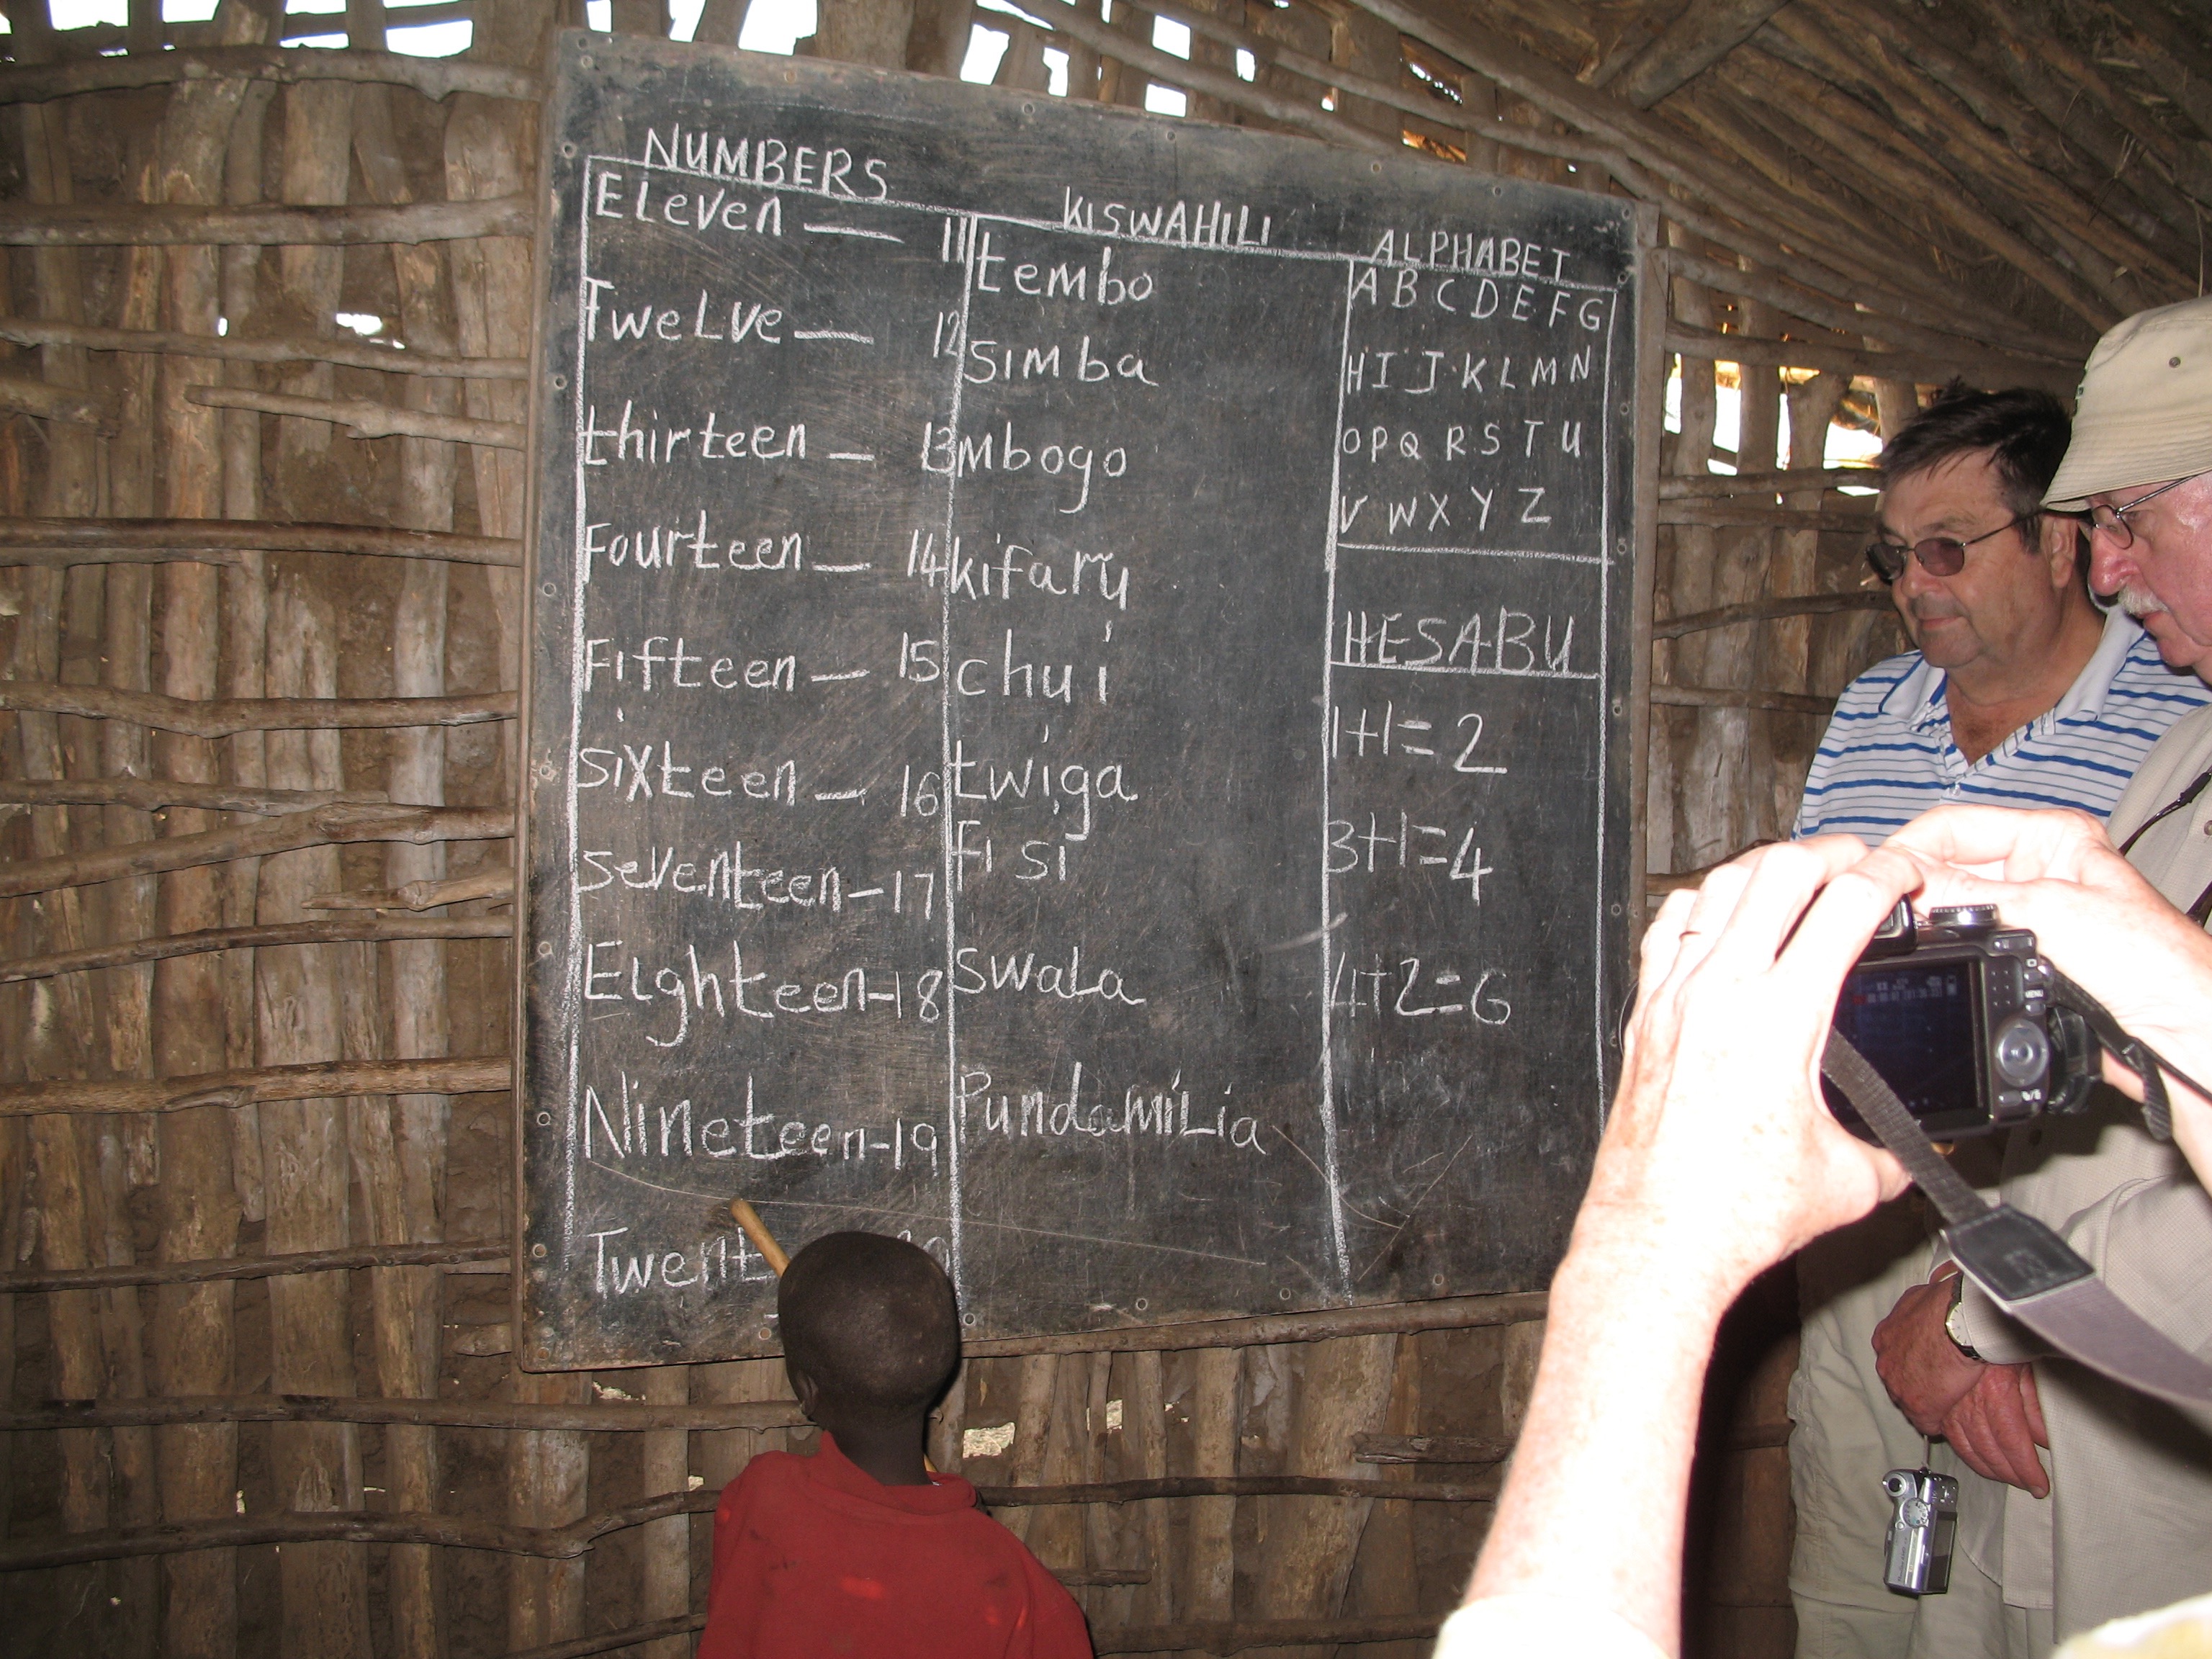 NUMBERS
Eleven — 11
Twelve — 12
thirteen — 13
Fourteen — 14
Fifteen — 15
sixteen — 16
seventeen - 17
Eighteen - 18
Nineteen - 19
Twent
KISWAHILI
tembo
simba
Mbogo
kifaru
chui
twiga
Fisi
Swala
Pundamilia
ALPHABET
A B C D E F G
H I J K L M N
O P Q R S T U
V W X Y Z
HESABU
1+1=2
3+1=4
4+2=6